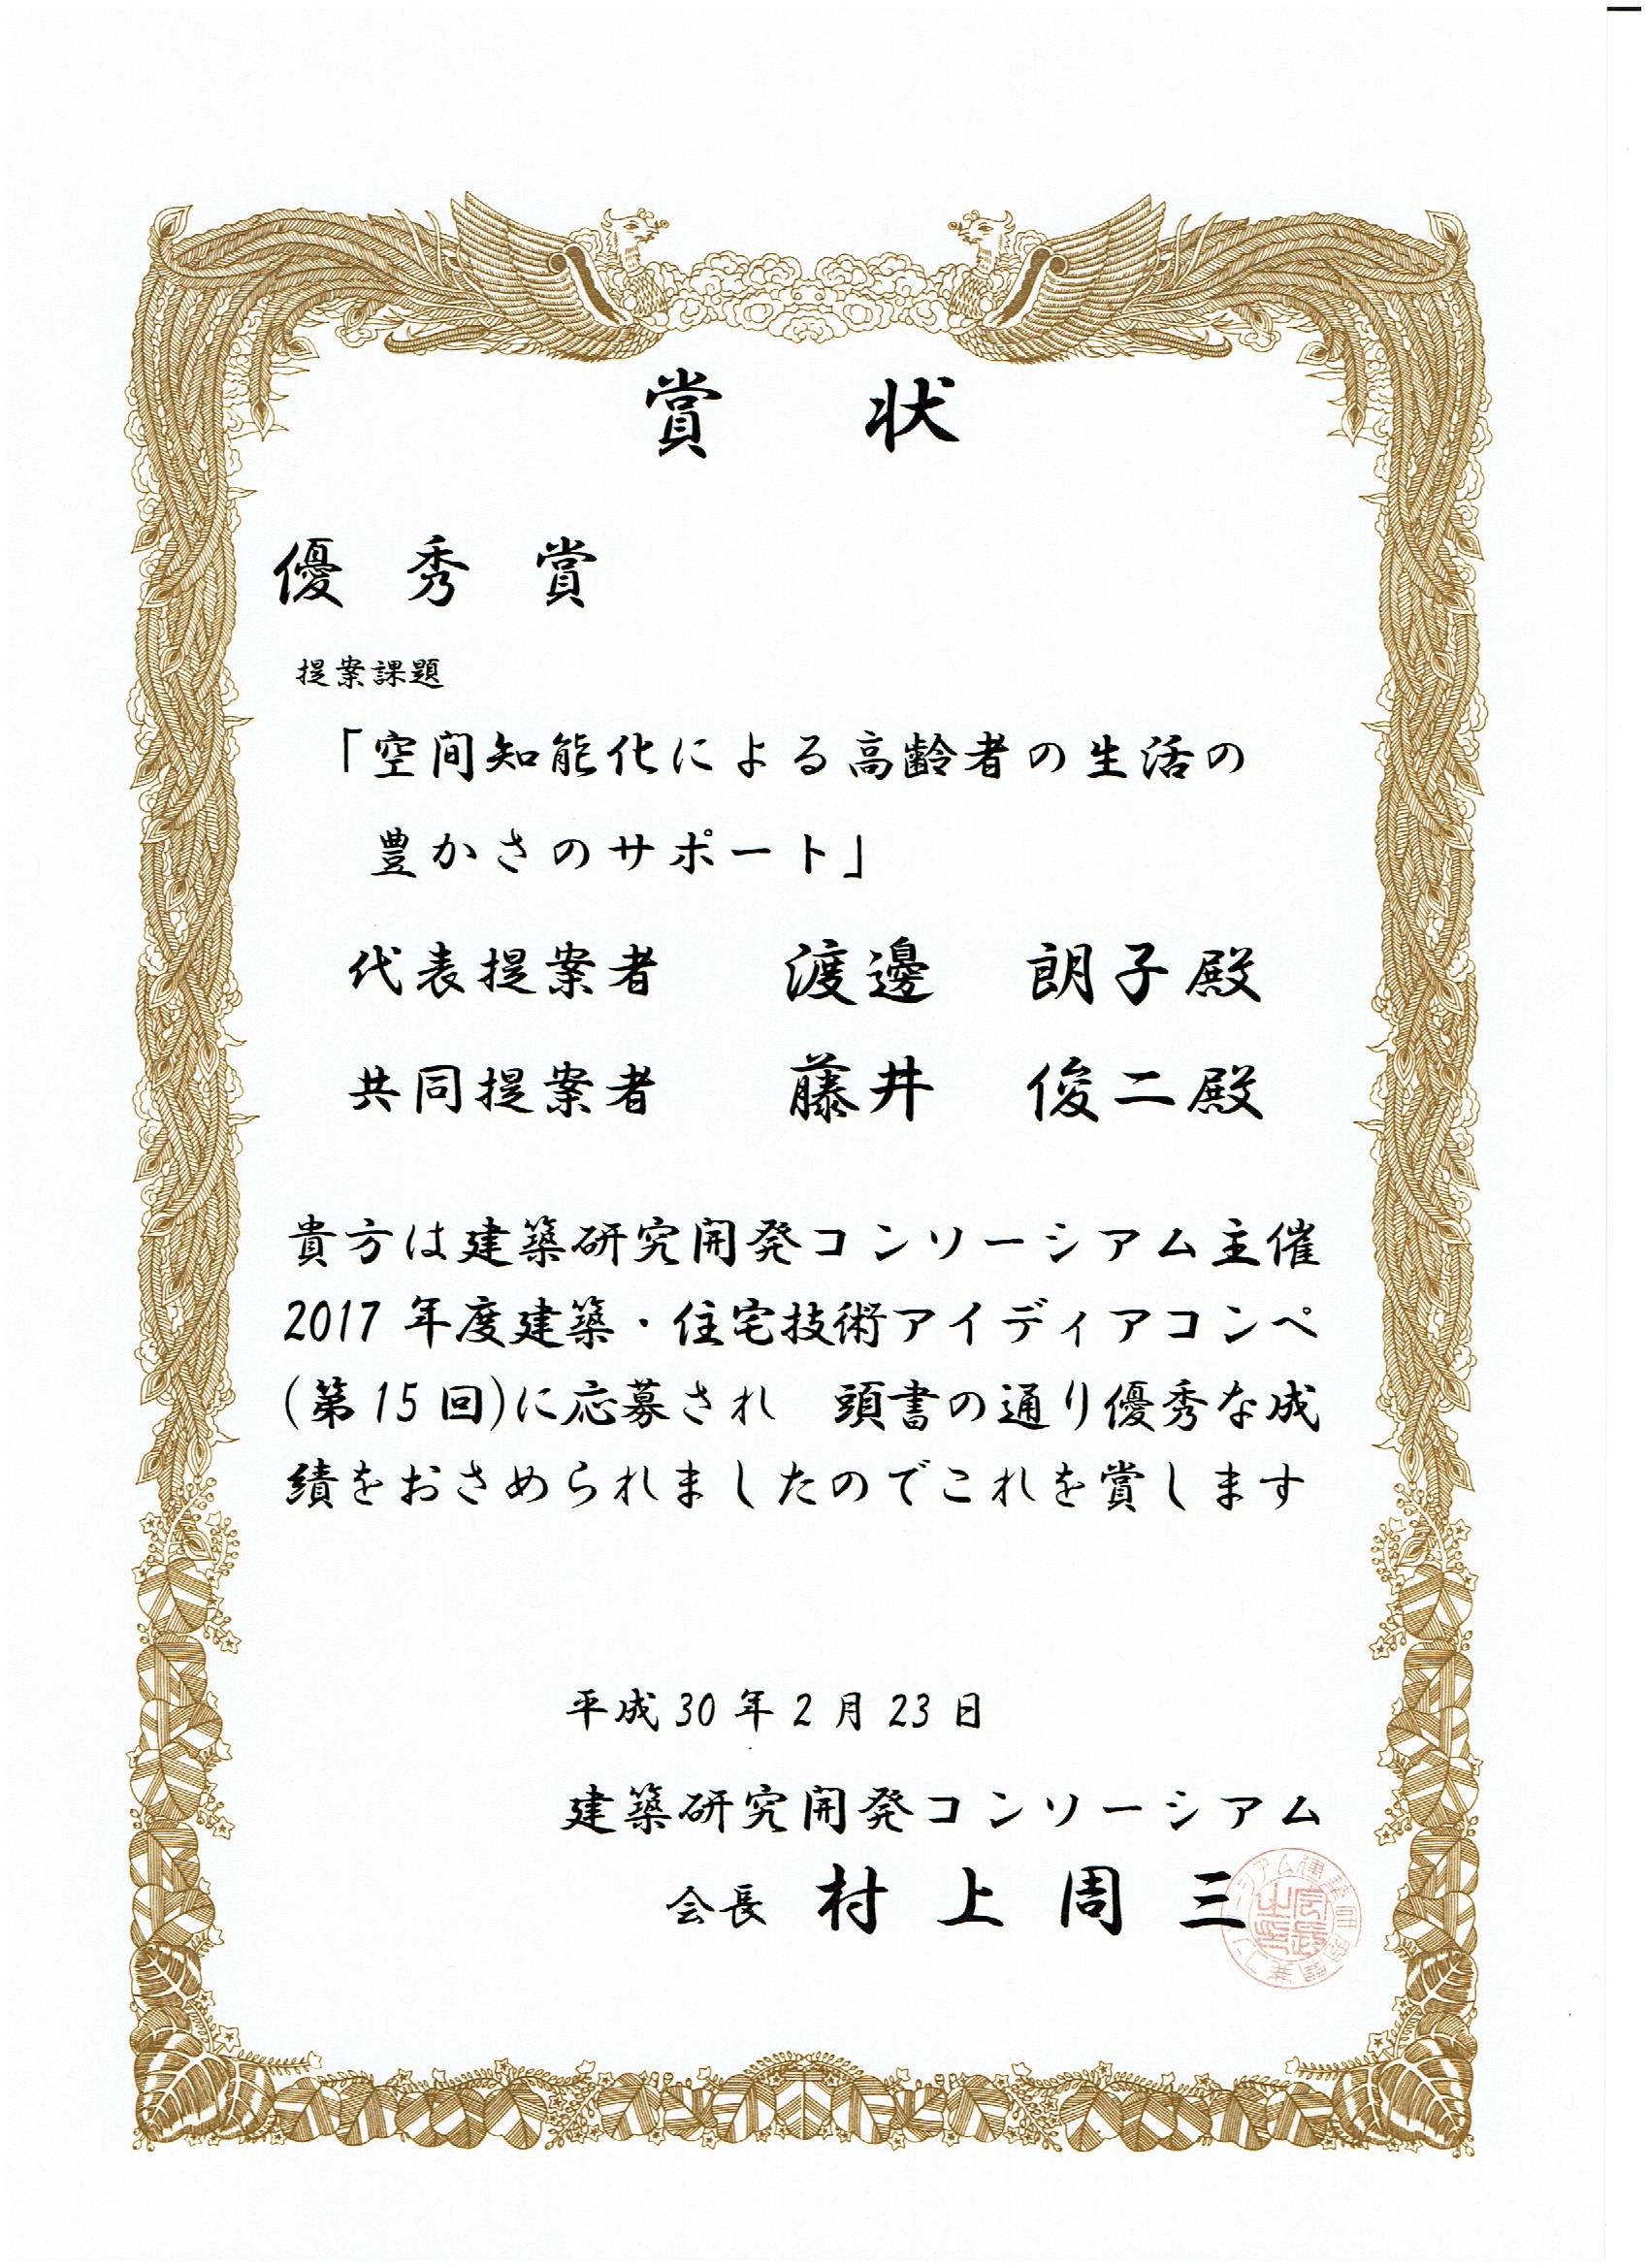 賞 状
優秀賞
提案課題
「空間知能化による高齢者の生活の
豊かさのサポート」
代表提案者 渡邊 朗子殿
共同提案者 藤井 俊二殿
貴方は建築研究開発コンソーシアム主催
2017年度建築・住宅技術アイディアコンペ
(第15回)に応募され 頭書の通り優秀な成
績をおさめられましたのでこれを賞します
平成30年2月23日
建築研究開発コンソーシアム
会長 村上周三